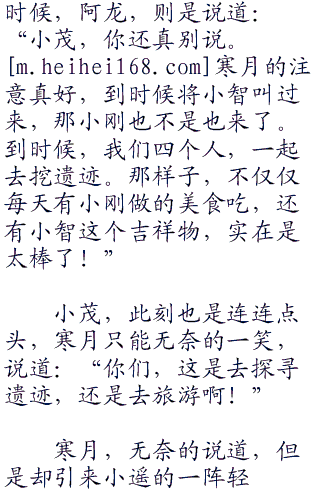 时候，阿龙，则是说道：
“小茂，你还真别说。
[m.heihei168.com]寒月的注
意真好，到时候将小智叫过
来，那小刚也不是也来了。
到时候，我们四个人，一起
去挖遗迹。那样子，不仅仅
每天有小刚做的美食吃，还
有小智这个吉祥物，实在是
太棒了！”
小茂，此刻也是连连点
头，寒月只能无奈的一笑，
说道：“你们，这是去探寻
遗迹，还是去旅游啊！”
寒月，无奈的说道，但
是却引来小遥的一阵轻